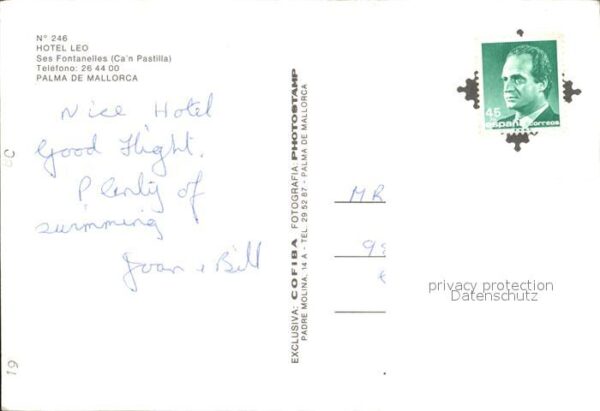 Nº 246
HOTEL LEO
Ses Fontanelles (Ca'n Pastilla)
Teléfono: 26 44 00
PALMA DE MALLORCA
Nice Hotel
Good Flight.
Plenty of
swimming
Joan + Bill
EXCLUSIVA: COFIBA FOTOGRAFIA PHOTOSTAMP
PADRE MOLINA, 14 A - TEL. 29 52 87 - PALMA DE MALLORCA
45
españa correos
MR
privacy protection
Datenschutz
19